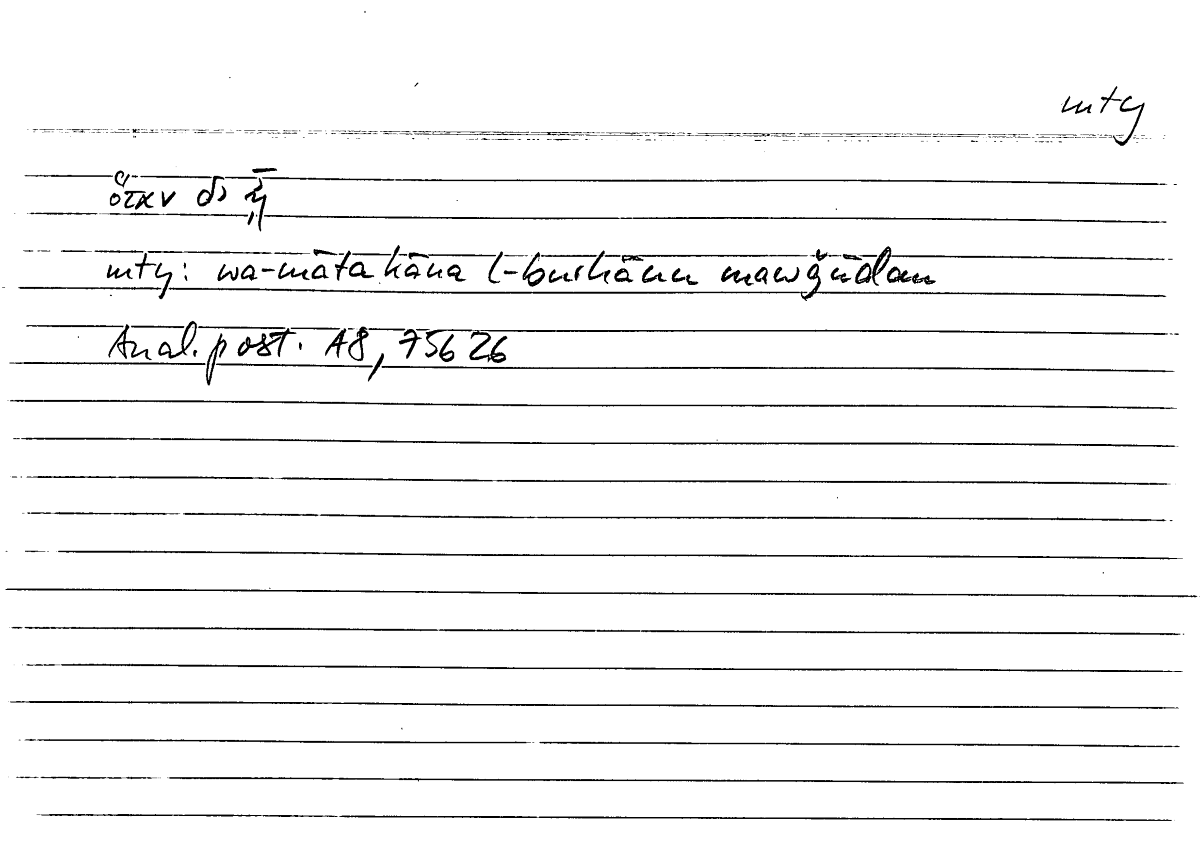 mty
ὅταν δ' ᾖ
mty: wa-matā kāna l-burhānu mawǧūdan
Anal. post. A8, 75b26